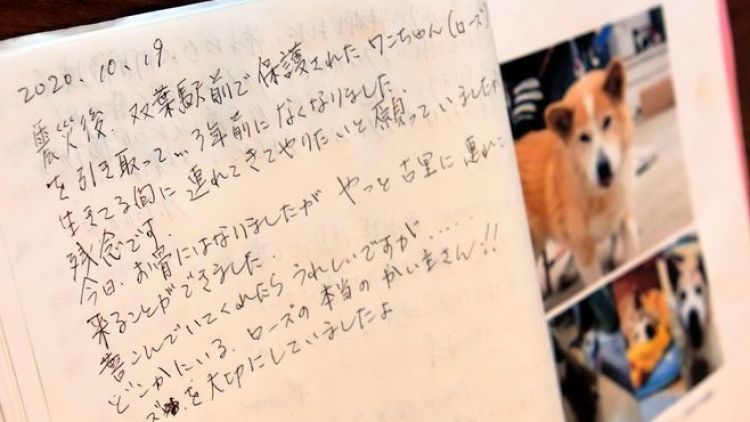 2020.10.19.
震災後、双葉駅前で保護されたワンちゃん(ローズ)
を引き取って…3年前になくなりました。
生きてる内に連れてきてやりたいと願っていましたが
残念です。
今日、お骨にはなりましたがやっと古里に連れに
来ることができました.
喜こんでいてくれたらうれしいですが.....
どこかにいる、ローズの本当のかい主さん!!
ズを大切にしていましたよ